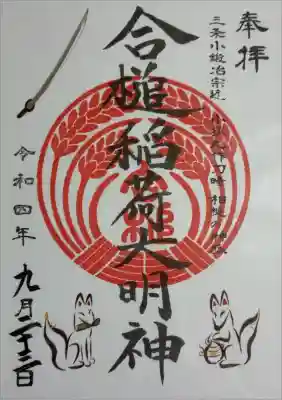 奉拝
三条小鍛冶宗近
合槌稲荷大明神
令和四年
九月二十三日